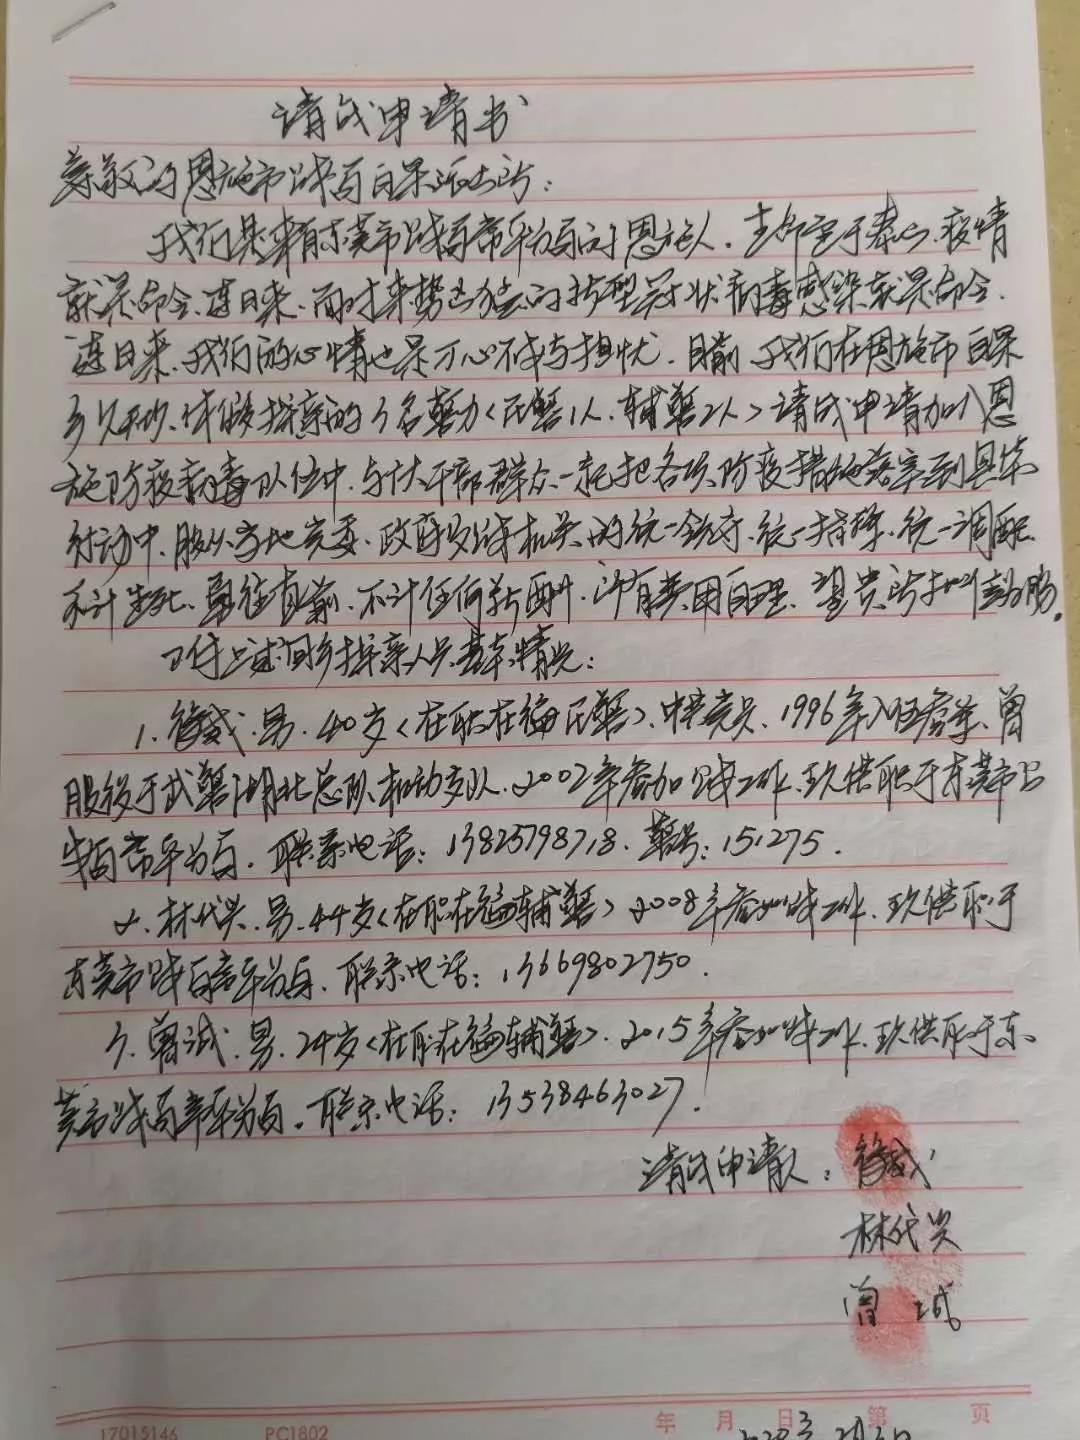 请战申请书
尊敬的恩施市公安局白果派出所：
我们是来自东莞市公安局常平分局的恩施人，生命重于泰山、疫情
就是命令、连日来、面对来势凶猛的新型冠状病毒感染就是命令、
连日来、我们的心情也是万分不安与担忧、目前、我们在恩施市白果
乡休假探亲的3名警力〈民警1人、辅警2人〉请战申请加入恩
施防疫病毒队伍中、与广大干部群众一起把各项防疫措施落实到具体
行动中、服从当地党委、政府公安机关的统一领导、统一指挥、统一调配、
不计生死、勇往直前、不计任何报酬、所有费用自理、望贵所批准为盼。
附上述回乡探亲人员基本情况：
1、徐威、男、40岁〈在职在编民警〉、中共党员、1996年入伍参军、曾
服役于武警湖北总队机动支队、2002年参加公安工作、现供职于东莞市公
安局常平分局、联系电话：13825798718、警号：151275.
2、林代兴、男、44岁〈在职在编辅警〉2008年参加公安工作、现供职于
东莞市公安局常平分局、联系电话：13669802750.
3、曾诚、男、24岁〈在职在编辅警〉、2015年参加公安工作、现供职于东
莞市公安局常平分局。联系电话：13538463027.
请战申请人：徐威
林代兴
曾诚
17015146 PC1802 年 月 日 第 页